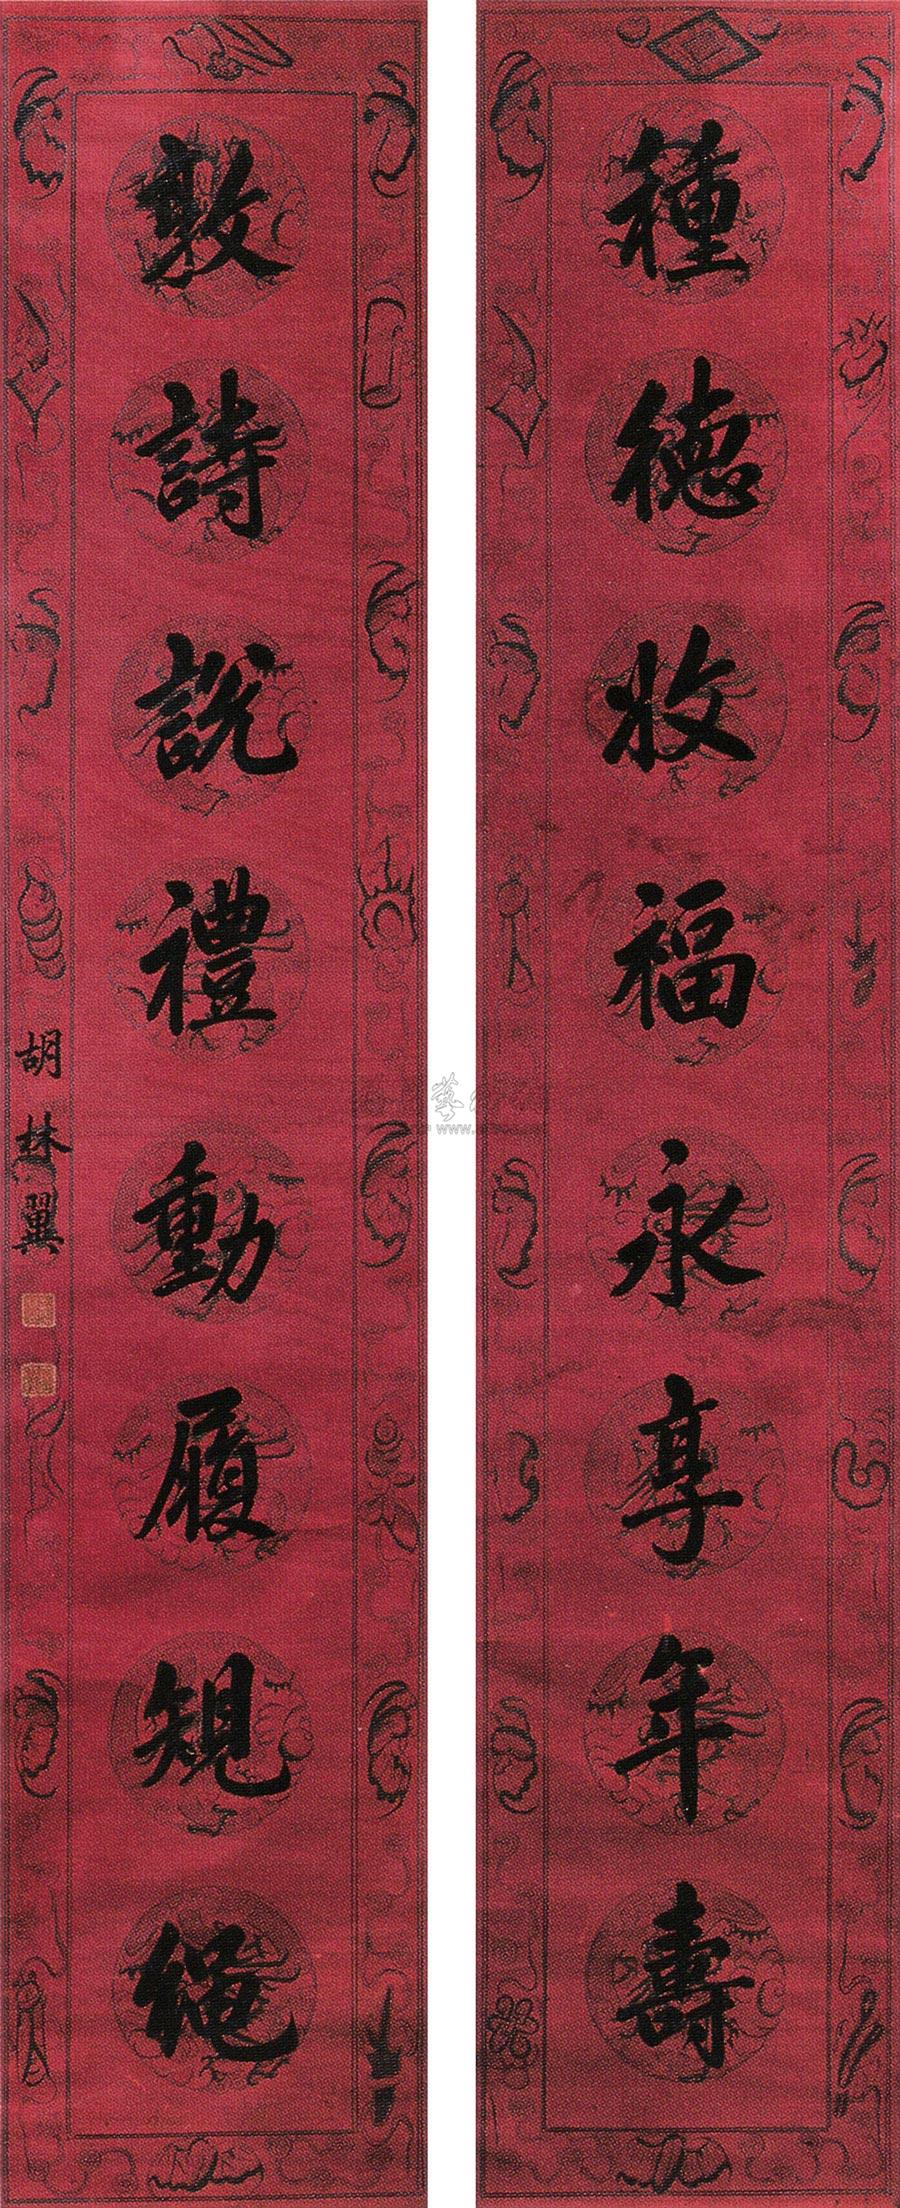 種德收福永享年壽
敦詩說禮動履規繩
胡林翼
藝
www.